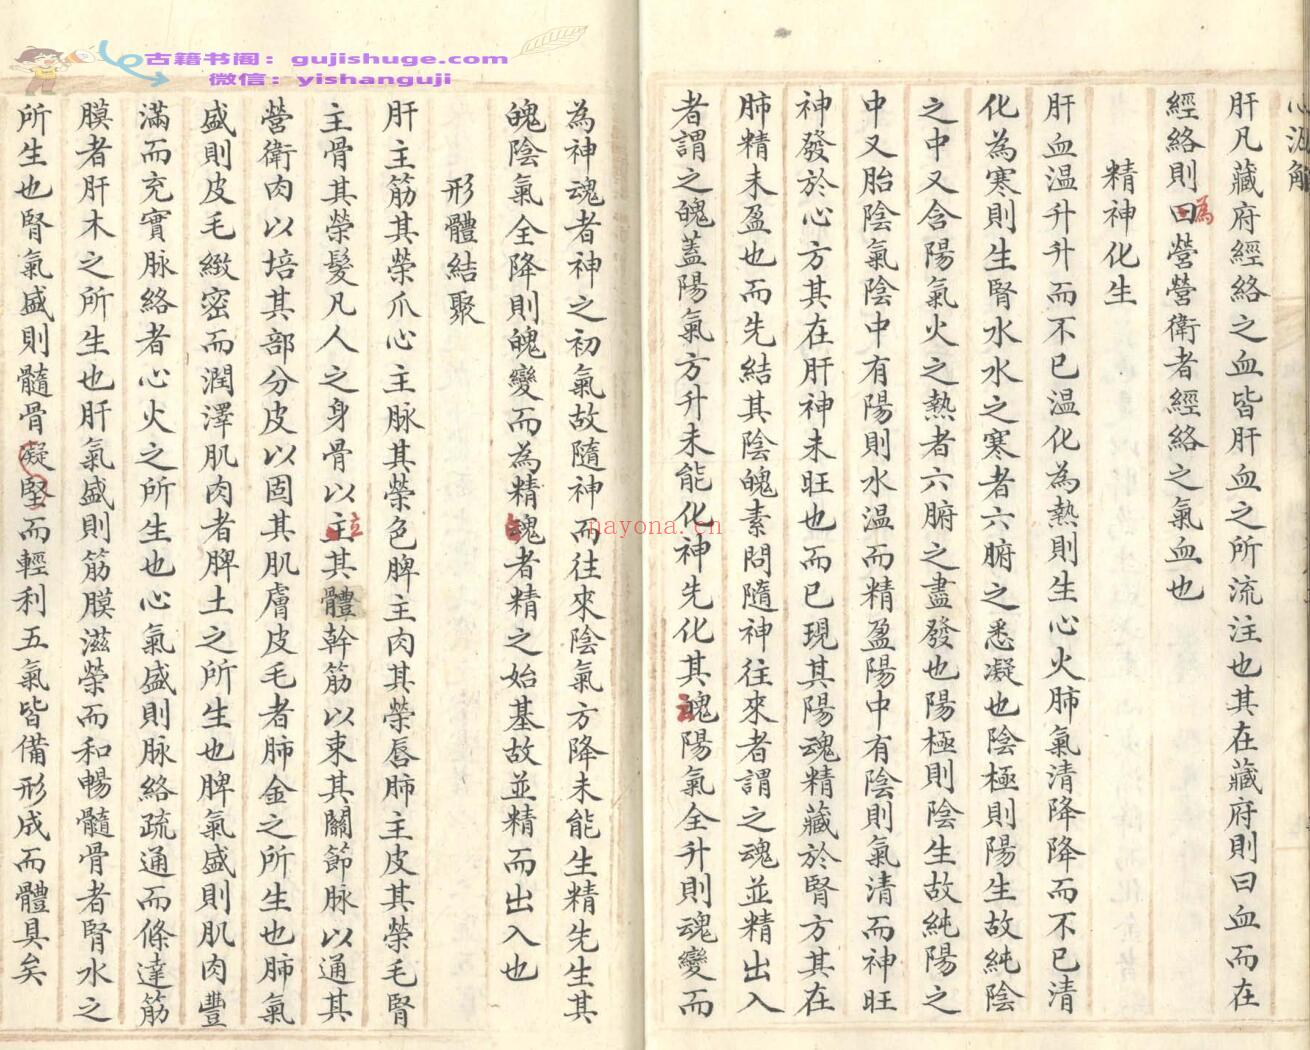 古籍书阁：gujishuge.com
微信：yishanguji
nayona.cn
心源解
肝凡藏府經絡之血皆肝血之所流注也其在藏府則曰血而在
經絡則曰營營衛者經絡之氣血也
為
精神化生
肝血温升升而不已温化為熱則生心火肺氣清降降而不已清
化為寒則生腎水水之寒者六腑之悉凝也陰極則陽生故純陰
之中又含陽氣火之熱者六腑之盡發也陽極則陰生故純陽之
中又胎陰氣陰中有陽則水温而精盈陽中有陰則氣清而神旺
神發於心方其在肝神未旺也而已現其陽魂精藏於腎方其在
肺精未盈也而先結其陰魄素問隨神往來者謂之魂並精出入
者謂之魄蓋陽氣方升未能化神先化其魄陽氣全升則魂變而
為神魂者神之初氣故隨神而往來陰氣方降未能生精先生其
魄陰氣全降則魄變而為精魂者精之始基故並精而出入也
形體結聚
肝主筋其榮爪心主脉其榮色脾主肉其榮唇肺主皮其榮毛腎
主骨其榮髮凡人之身骨以主其體幹筋以束其關節脉以通其
立
營衛肉以培其部分皮以固其肌膚皮毛者肺金之所生也肺氣
盛則皮毛緻密而潤澤肌肉者脾土之所生也脾氣盛則肌肉豐
滿而充實脉絡者心火之所生也心氣盛則脉絡疏通而條達筋
膜者肝木之所生也肝氣盛則筋膜滋榮而和暢髓骨者腎水之
所生也腎氣盛則髓骨凝堅而輕利五氣皆備形成而體具矣